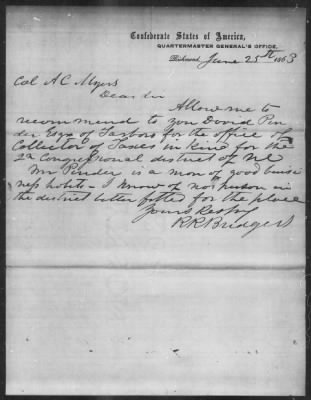 Confederate States of America,
QUARTERMASTER GENERAL'S OFFICE,
Richmond, June 25th 1863
Col A C Myers
Dear Sir
Allow me to
recommend to you David Pen
der Esqr of Tarboro for the office of
Collector of Taxes in kind for the
2n Congressional district of NC
Mr Pender is a man of good busi
ness habits - I know of no person in
the district better fitted for the place
Yours Respy
R R Bridgers